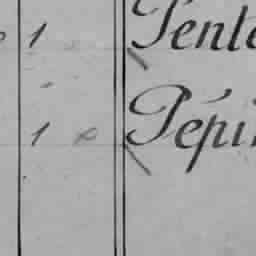 1 Pente
1 Pépi